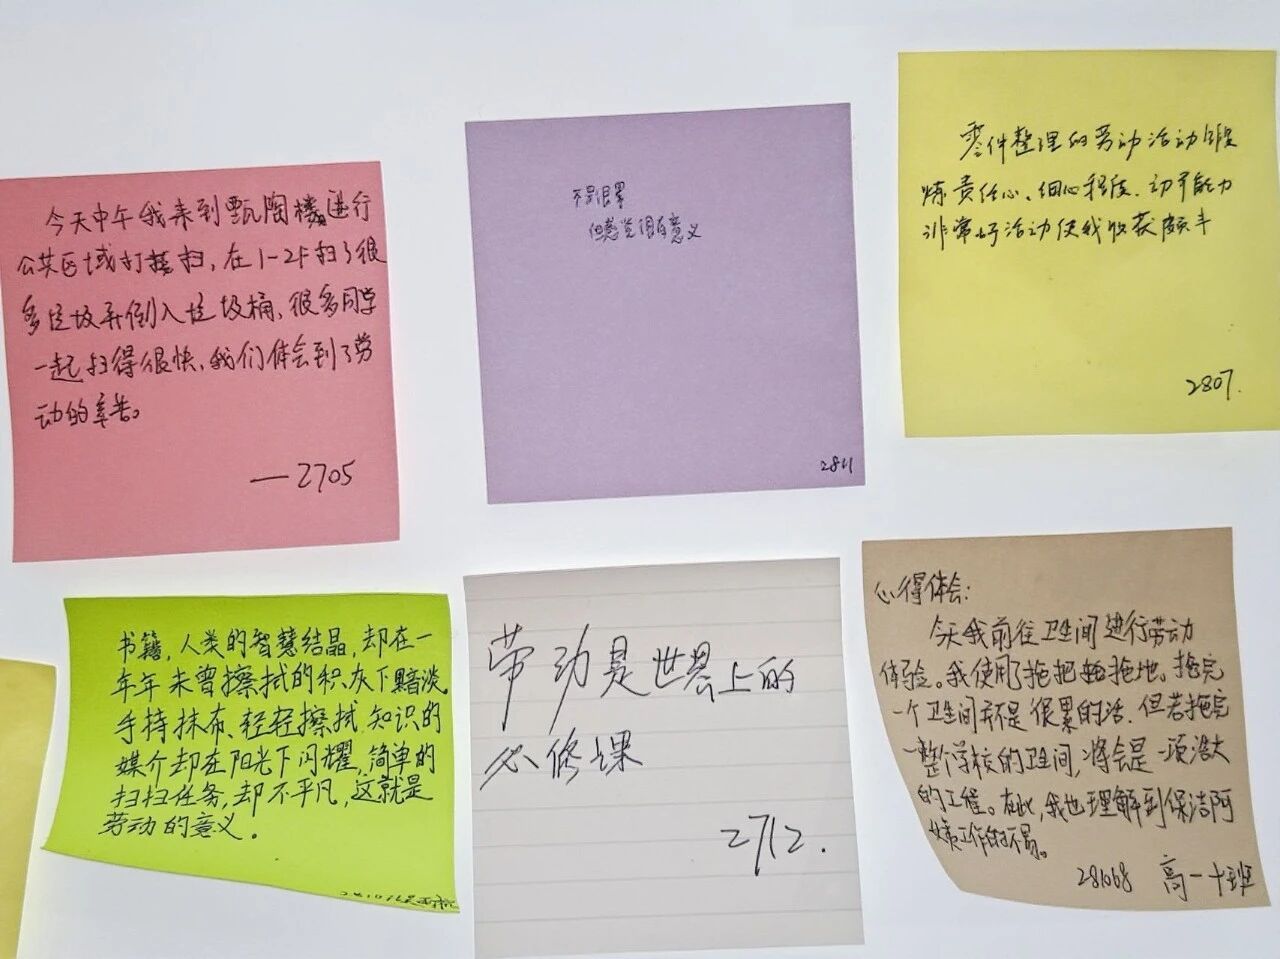 今天中午我来到甄陶楼进行
公共区域打扫，在1-2F扫了很
多垃圾并倒入垃圾桶，很多同学
一起扫得很快，我们体会到了劳
动的辛苦。
——2705
不是很累
但感觉很有意义
2811
零件整理的劳动活动锻
炼责任心、细心程度、动手能力
非常好活动使我收获颇丰
2807.
书籍，人类的智慧结晶，却在一
年年未曾擦拭的积灰下黯淡
手持抹布、轻轻擦拭，知识的
媒介却在阳光下闪耀，简单的
扫扫任务，却不平凡，这就是
劳动的意义。
劳动是世界上的
必修课
2712.
心得体会：
今天我前往卫生间进行劳动
体验。我使用了拖把拖地。拖完
一个卫生间并不是很累的活，但若拖完
一整个学校的卫生间，将会是一项浩大
的工程。在此，我也理解到保洁阿
姨工作的不易。
281068 高一十班